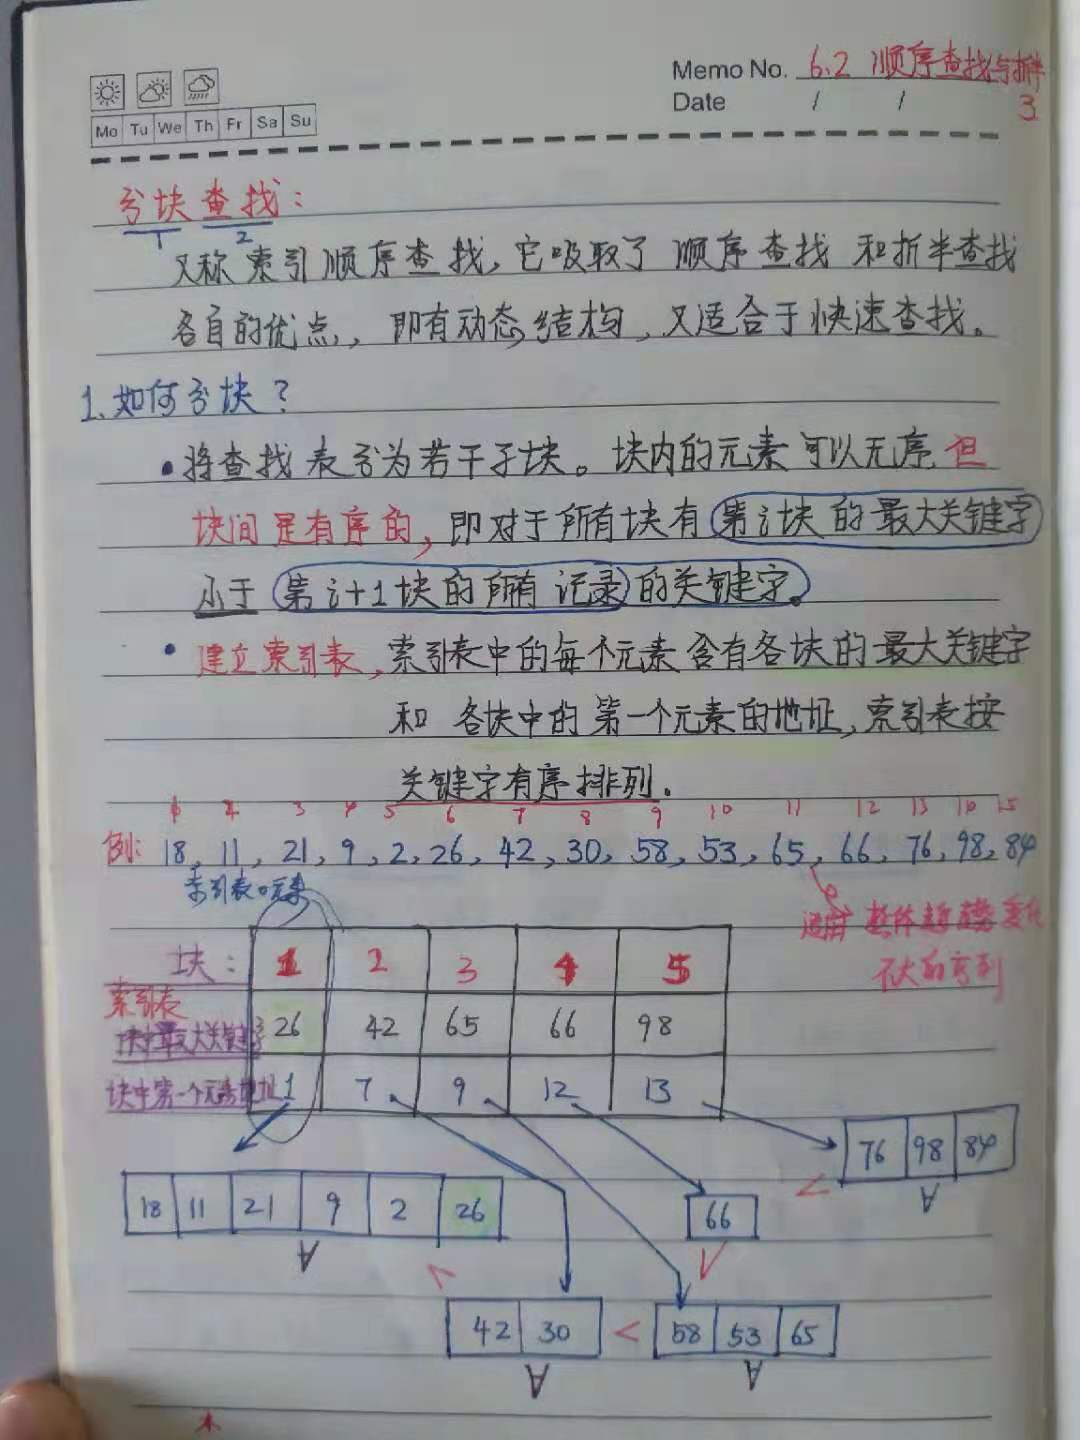 Memo No. 6.2 顺序查找与折半
Date / / 3
Mo Tu We Th Fr Sa Su
分块查找：
1 2
又称索引顺序查找，它吸取了 顺序查找 和折半查找
各自的优点，即有动态结构，又适合于快速查找。
1.如何分块？
•将查找表分为若干子块。块内的元素可以无序但
块间是有序的，即对于所有块有第i块的最大关键字
小于第i+1块的所有记录的关键字。
•建立索引表，索引表中的每个元素含有各块的最大关键字
和 各块中的第一个元素的地址，索引表按
关键字有序排列.
1 2 3 4 5 6 7 8 9 10 11 12 13 15
例: 18, 11, 21, 9, 2, 26, 42, 30, 58, 53, 65, 66, 76, 98, 84
索引表
适用 整体趋势变化
不大的序列
块: 1 2 3 4 5
索引表
块中最大关键字 26 42 65 66 98
块中第一个元素地址 1 7 9 12 13
76 98 84
18 11 21 9 2 26
66
42 30 < 58 53 65